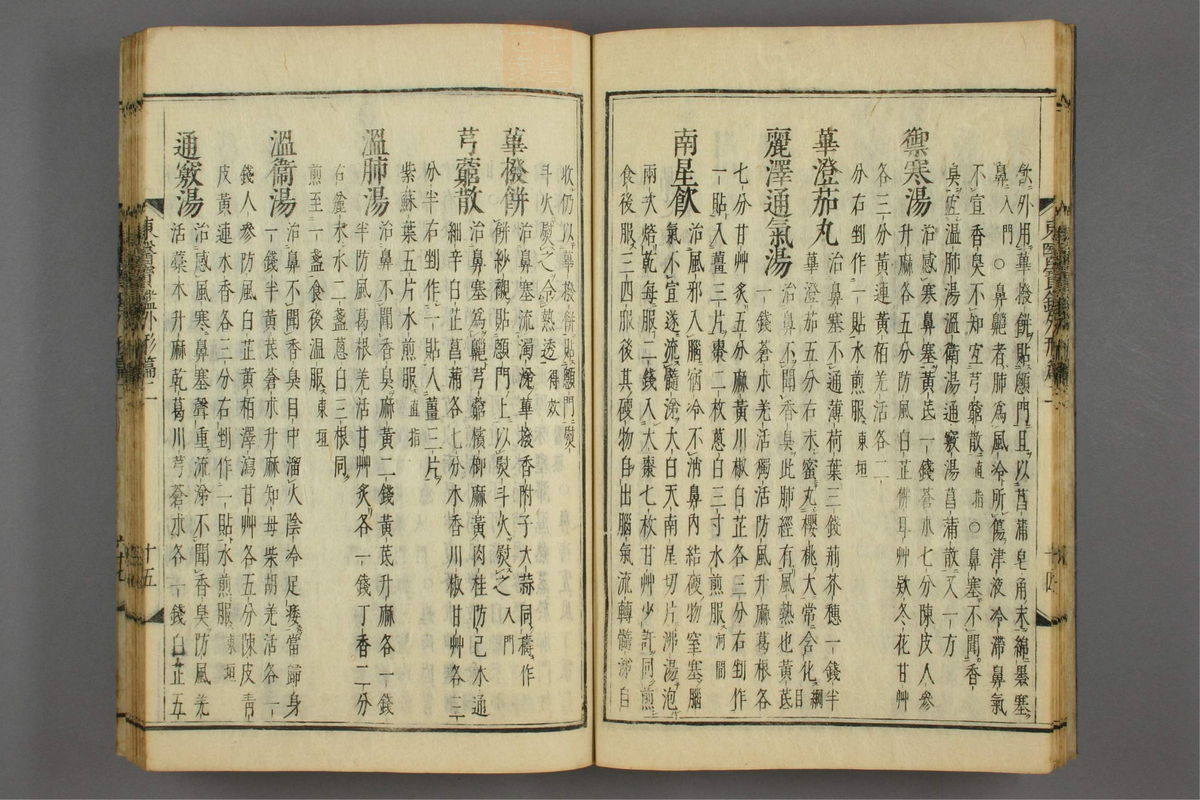 飲外用蓽撥餅貼顖門且以菖蒲皂角末綿裹塞
鼻入門○鼻鼽者肺爲風冷所傷津液冷滯鼻氣
不宣香臭不知宜芎藭散直指○鼻塞不聞香
臭宜溫肺湯溫衛湯通竅湯菖蒲散又一方
禦寒湯 治感寒鼻塞黃芪一錢蒼朮七分陳皮人參
升麻各五分防風白芷佛耳艸欵冬花甘艸
各三分黃連黃栢羌活各二
分右剉作一貼水煎服東垣
蓽澄茄丸 治鼻塞不通薄荷葉三錢荊芥穗一錢半
蓽澄茄五分右末蜜丸櫻桃大常含化綱目
麗澤通氣湯 治鼻不聞香臭此肺經有風熱也黃芪
一錢蒼朮羌活獨活防風升麻葛根各
七分甘艸炙五分麻黃川椒白芷各三分右剉作
一貼入薑三片棗二枚蔥白三寸水煎服河間
南星飲 治風邪入腦宿冷不消鼻內結硬物窒塞腦
氣不宣遂流髓涕大白天南星切片沸湯泡
兩次焙乾每服二錢入大棗七枚甘艸少許同煎
食後服三四服後其硬物自出腦氣流轉髓涕自
收仍以蓽撥餅貼顖門
斗火熨之令熱透得效
蓽撥餅 治鼻塞流濁涕蓽撥香附子大蒜同擣作
餅紗襯貼顖門上以熨斗火熨之入門
芎藭散 治鼻塞爲鼽芎藭檳榔麻黃肉桂防己木通
細辛白芷菖蒲各七分木香川椒甘艸各三
分半右剉作一貼入薑三片
紫蘇葉五片水煎服直指
溫肺湯 治鼻不聞香臭麻黃二錢黃芪升麻各一錢
半防風葛根羌活甘艸炙各一錢丁香二分
右麄末水二盞蔥白三根同
煎至一盞食後溫服東垣
溫衛湯 治鼻不聞香臭目中溜火陰冷足痿當歸身
一錢半黃芪蒼朮升麻知母柴胡羌活各一
錢人參防風白芷黃栢澤瀉甘艸各五分陳皮靑
皮黃連木香各三分右剉作一貼水煎服東垣
通竅湯 治感風寒鼻塞聲重流涕不聞香臭防風羌
活藁本升麻乾葛川芎蒼朮各一錢白芷五
東醫寶鑑外形篇二
十五